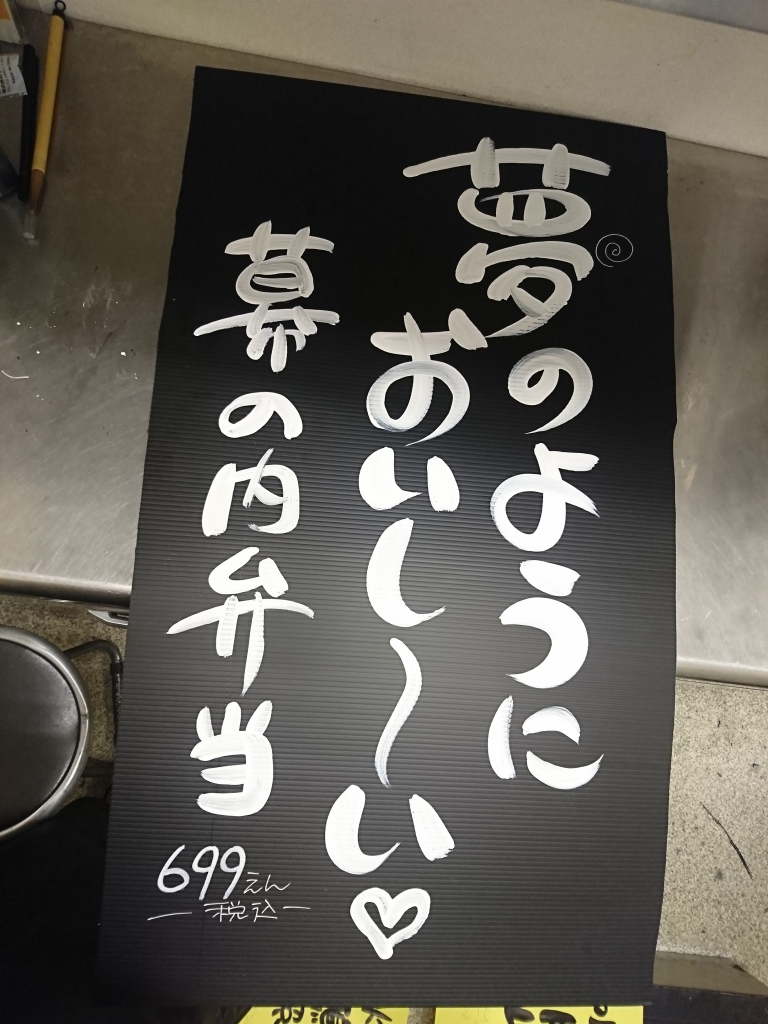 夢のように
おいし〜い♡
幕の内弁当
699えん
税込